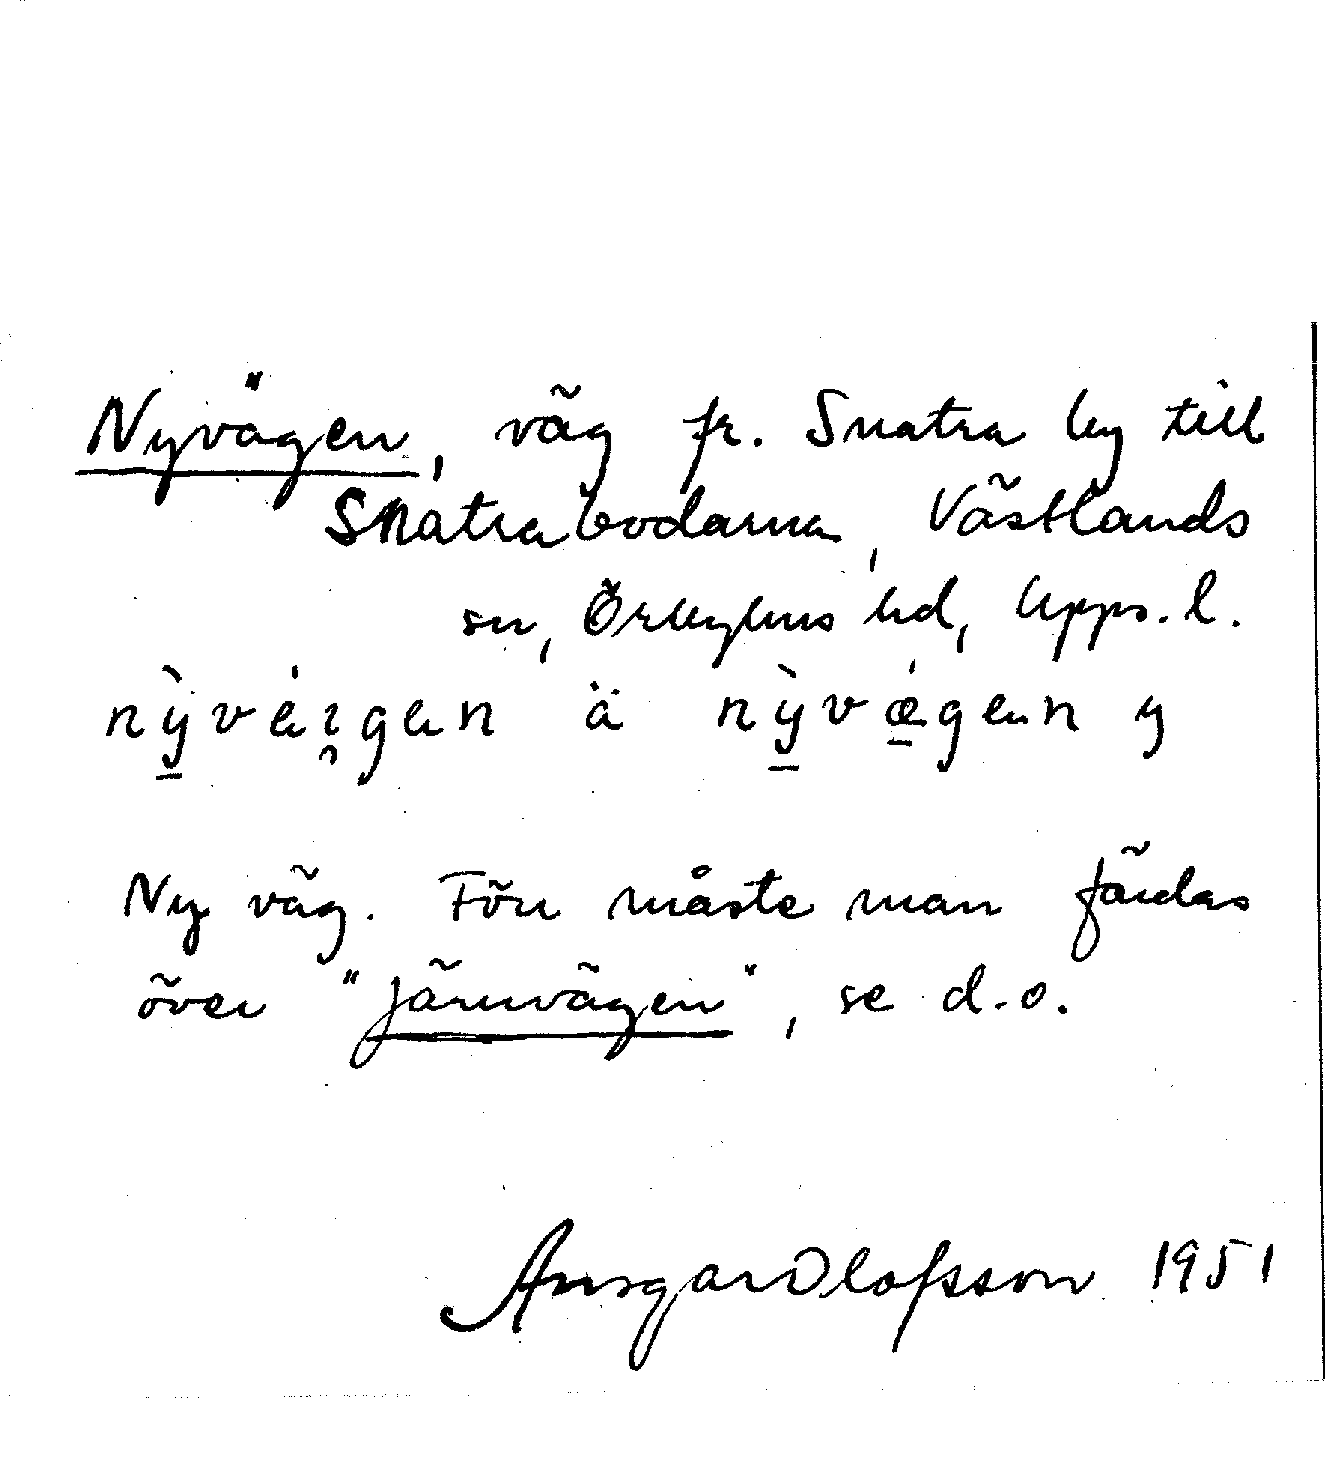 Nyvägen, väg fr. Snatra by till
Snatrabodarna, Västlands
sn, Örbyhus hd, Upps. l.
ä y
Ny väg. Förr måste man färdas
över "järnvägen", se d.o.
Ansgar Olofsson 1951